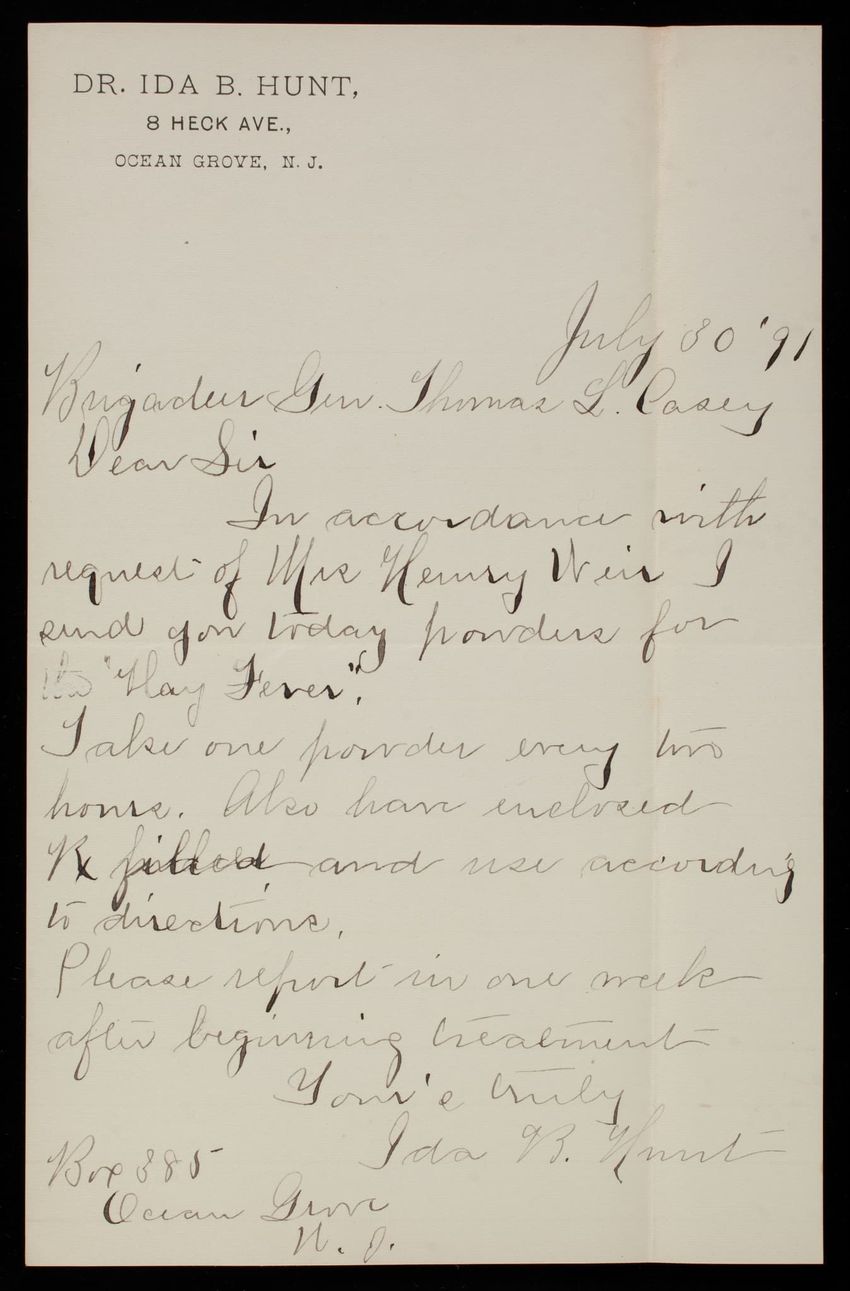 DR. IDA B. HUNT,
8 HECK AVE.,
OCEAN GROVE, N. J.
July 30 '91
Brigadier Gen. Thomas L. Casey
Dear Sir
In accordance with
request of Mrs Henry Weir I
send you today powders for
the "Hay Fever".
Take one powder every two
hours. Also have enclosed
Rx filled and use according
to directions.
Please report in one week
after beginning treatment
Your's truly
Ida B. Hunt
Box 385
Ocean Grove
N. J.